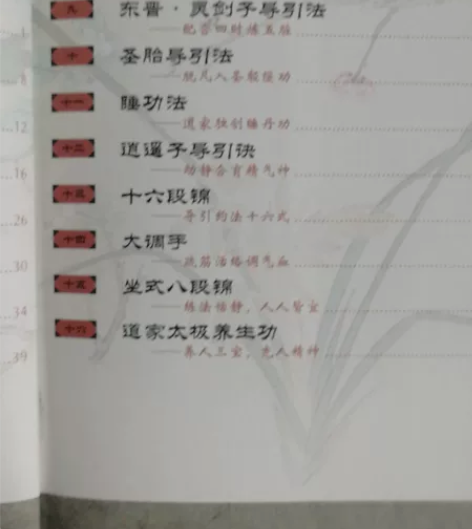 九 东晋·灵剑子导引法
——配合四时练五脏
十 圣胎导引法
——脱凡入圣服强功
十一 睡功法
——道家独创睡丹功
十二 逍遥子导引诀
——动静合育精气神
十三 十六段锦
——导引约法十六式
十四 大调手
——疏筋活络调气血
十五 坐式八段锦
——练法恬静，人人皆宜
十六 道家太极养生功
——养人三宝，充人精神
1
8
12
16
26
30
34
39